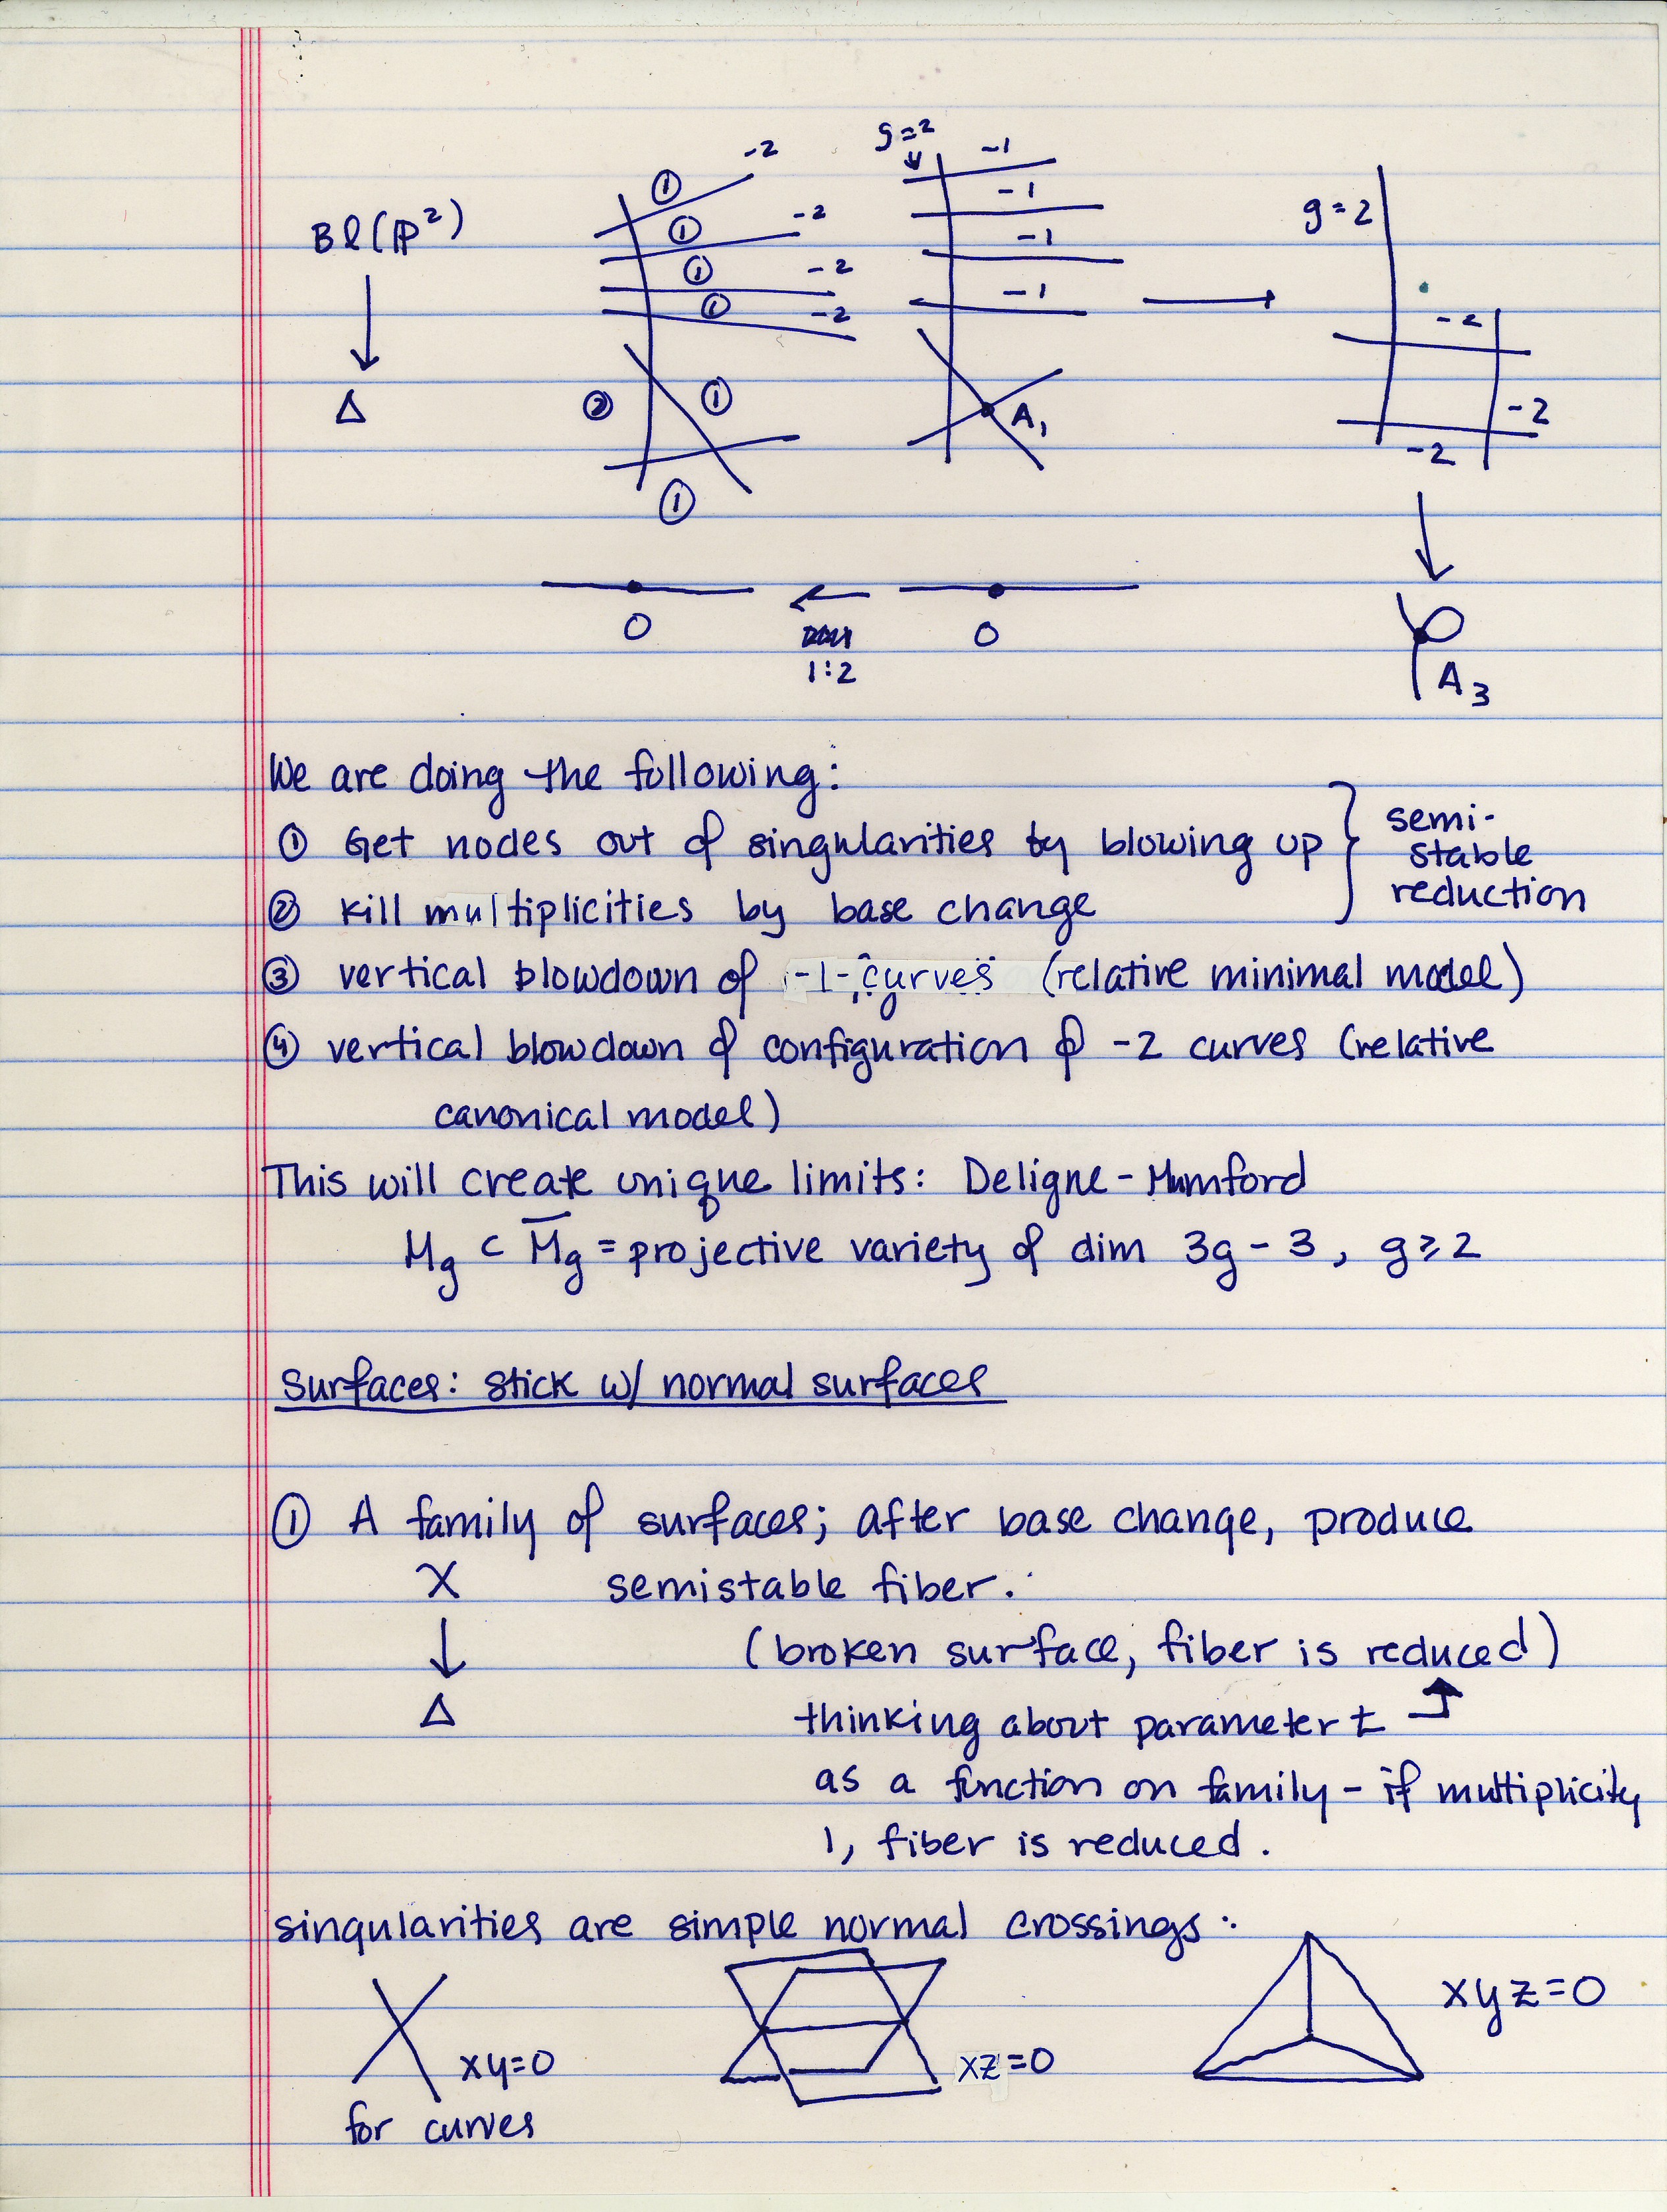 Bl(ℙ²)
↓
Δ
① -2
① -2
① -2
① -2
②
①
①
g=2
↓
-1
-1
-1
-1
A₁
→
g=2
-2
-2
-2
↓
A₃
0
←
1:2
0
We are doing the following:
① Get nodes out of singularities by blowing up
② kill multiplicities by base change
} semi-
stable
reduction
③ vertical blowdown of -1-curves (relative minimal model)
④ vertical blowdown of configuration of -2 curves (relative
canonical model)
This will create unique limits: Deligne-Mumford
M_g ⊂ M̅_g = projective variety of dim 3g-3, g≥2
Surfaces: stick w/ normal surfaces
① A family of surfaces; after base change, produce
X semistable fiber.
↓ (broken surface, fiber is reduced)
Δ thinking about parameter t
as a function on family - if multiplicity
1, fiber is reduced.
singularities are simple normal crossings:
xy=0
for curves
xz=0
xyz=0